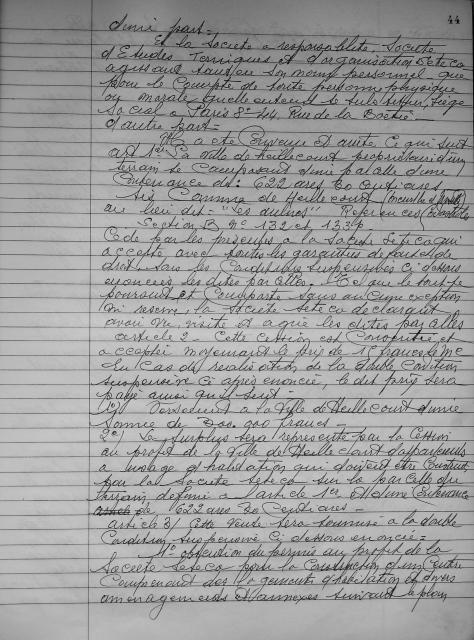 44
d'une part -
Et la Société a responsabilité, Société
d'Etudes Techniques et d'organisation Seteco
agissant tant en son nom personnel que
pour le Compte de toute personne physique
ou morale quelle entend se substituer, siège
social a Paris 8e 44 Rue de la Boétie
d'autre part -
Il a été Convenu et arrêté Ce qui suit
art 1er La Ville de Heillecourt propriétaire d'un
terrain se Composant d'une parcelle d'une
Contenance de : 622 ares 20 Centiares
Sis Commune de Heillecourt
au lieu dit - "Les aulnes" - Références
Section B n° 132 et 133
Cède par les présentes a la Société Seteco qui
accepte avec toutes les garanties de fait et de
droit sous les Conditions suspensives Ci dessous
énoncées les dites parcelles. Tel que le tout se
poursuit et Comporte sans aucune exception
ni réserve, la Société Seteco déclarant
avoir vu, visité et agréé les dites parcelles
article 2 - Cette Cession est Consentie et
acceptée moyennant le prix de 1 francs le M2
En Cas de réalisation de la double Condition
suspensive Ci après énoncée, le dit prix sera
payé ainsi qu'il suit -
1°) Versement a la Ville de Heillecourt d'une
Somme de 000 francs -
2°) Le Surplus sera représenté par la Cession
au profit de la Ville de Heillecourt d'appartements
a usage d'habitation qui doivent être Construit
par la Société Seteco sur la parcelle du
terrain défini a l'article 1er et d'une Contenance
de 622 ares 20 Centiares -
article 3/ Cette Vente sera soumise a la double
Condition suspensive Ci dessous énoncée =
1° obtention du permis au profit de la
Société Seteco pour la Construction d'un Centre
Comprenant des logements d'habitation et divers
aménagements et annexes suivant le plan